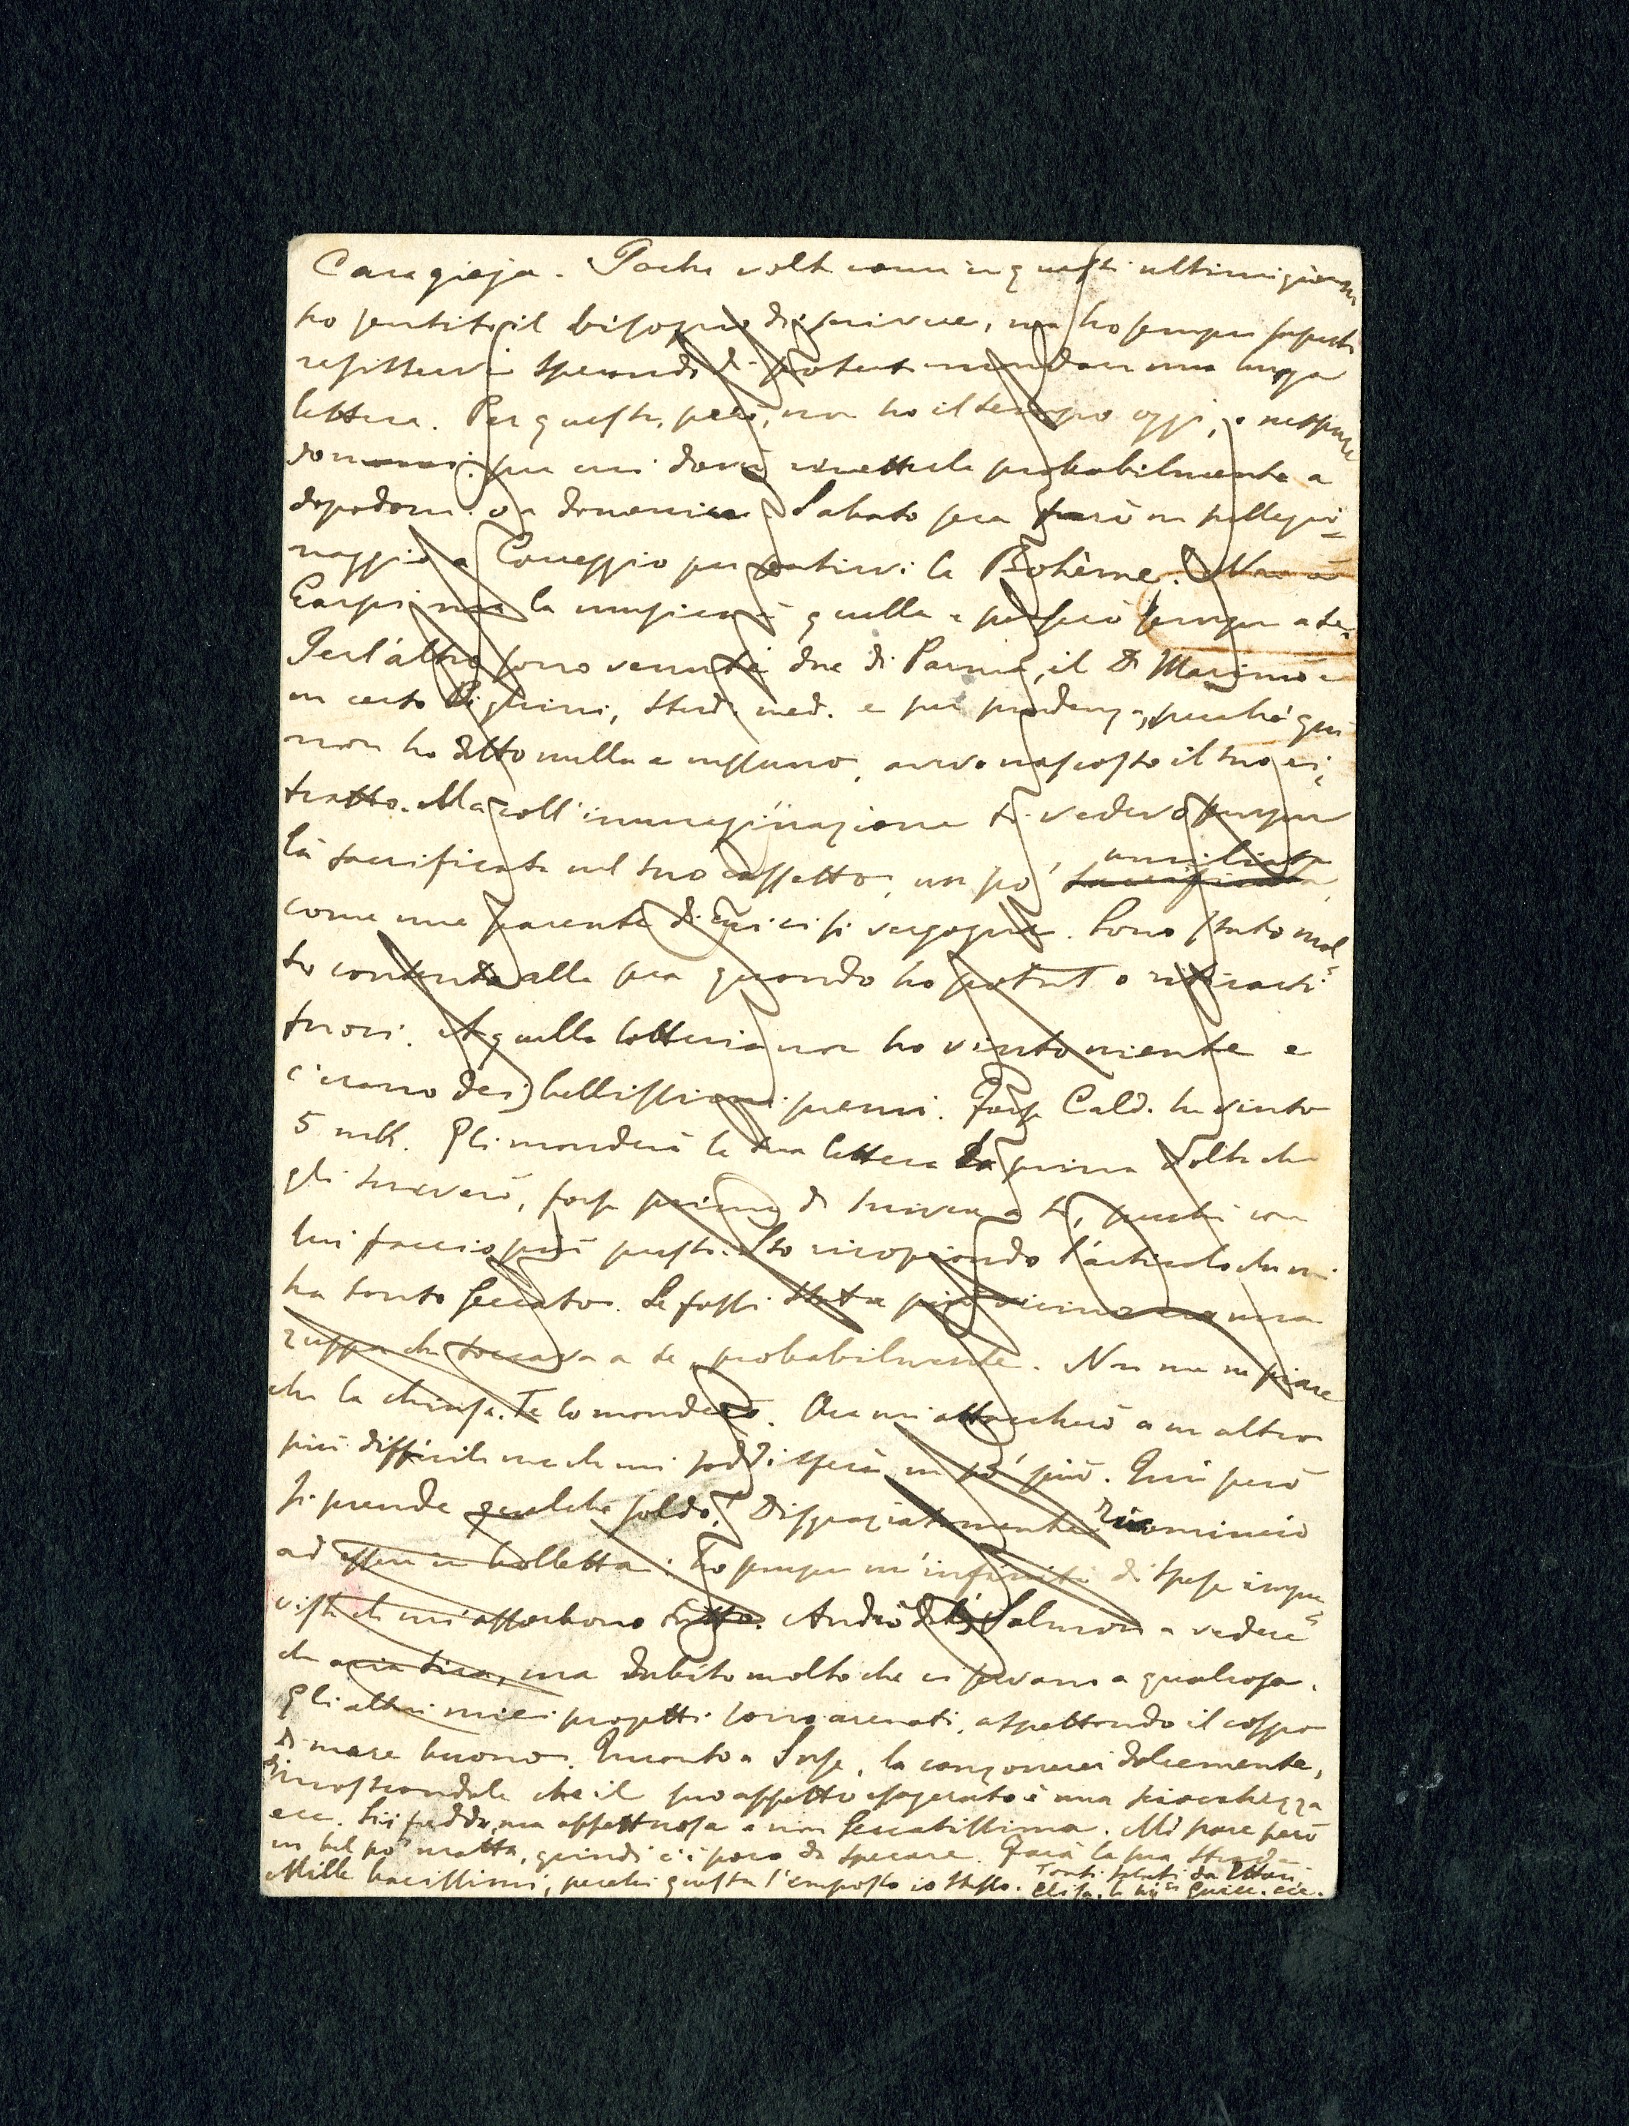 Cara gioja. Poche volte come in questi ultimi giorni
ho sentito il bisogno di scrivere, ma ho sempre saputo
resistervi sperando di poterti mandare una lunga
lettera. Per questo, però, non ho il tempo oggi, e neppure
domani: per cui dovrò rimetterla probabilmente a
dopodom. o a domenica. Sabato sera farò un pellegri=
naggio a Correggio per sentirvi la Bohème. Non è
Carpi ma la musica è quella e penserò sempre a te.
Ierl'altro sono venuti due di Parma, il Dr Marimò e
un certo Pighini, stud. med. e per prudenza, perchè qui
non ho detto nulla a nessuno, avevo nascosto il tuo ri=
tratto. Ma coll'immaginazione ti vedevo sempre
là sacrificata nel tuo cassetto, un po' umiliata
come una parente di cui ci si vergogna. Sono stato mol=
to contento alla sera quando ho potuto ritirarti
fuori. A quella lotteria non ho vinto niente e
c'erano dei bellissimi premi. Forse Cald. ha vinto
5 mk. Gli manderò la tua lettera la prima volta che
gli scriverò, forse prima di scrivere a te, perchè con
lui faccio più presto. Sto ricopiando l'articolo che mi
ha tanto seccato. Se fossi stata più vicina era una
zuppa che toccava a te, probabilmente. Non me ne piace
che la chiusa. Te lo manderò. Ora mi attaccherò a un altro
più difficile ma che mi soddisferà un po' più. Qui però
si prende qualche soldo. Disgraziatamente ricomincio
ad essere in bolletta: ho sempre un'infinità di spese impre=
viste che mi assorbono tutto. Andrò dal Salmon a vedere
che aria tira, ma dubito molto che ci servano a qualcosa.
Gli altri miei progetti sono arenati, aspettando il colpo
di mare buono. Quanto a Sofe, la canzonerei dolcemente,
dimostrandole che il suo affetto esagerato è una sciocchezza
ecc. Sii fredda, ma affettuosa e non seccatissima. Mi pare però
un bel po' matta, quindi c'è poco da sperare. Farà la sua strada.
Mille bacissimi, perchè questa l'imposto io stesso. Tanti saluti da Ettore,
Elisa, le ecc.